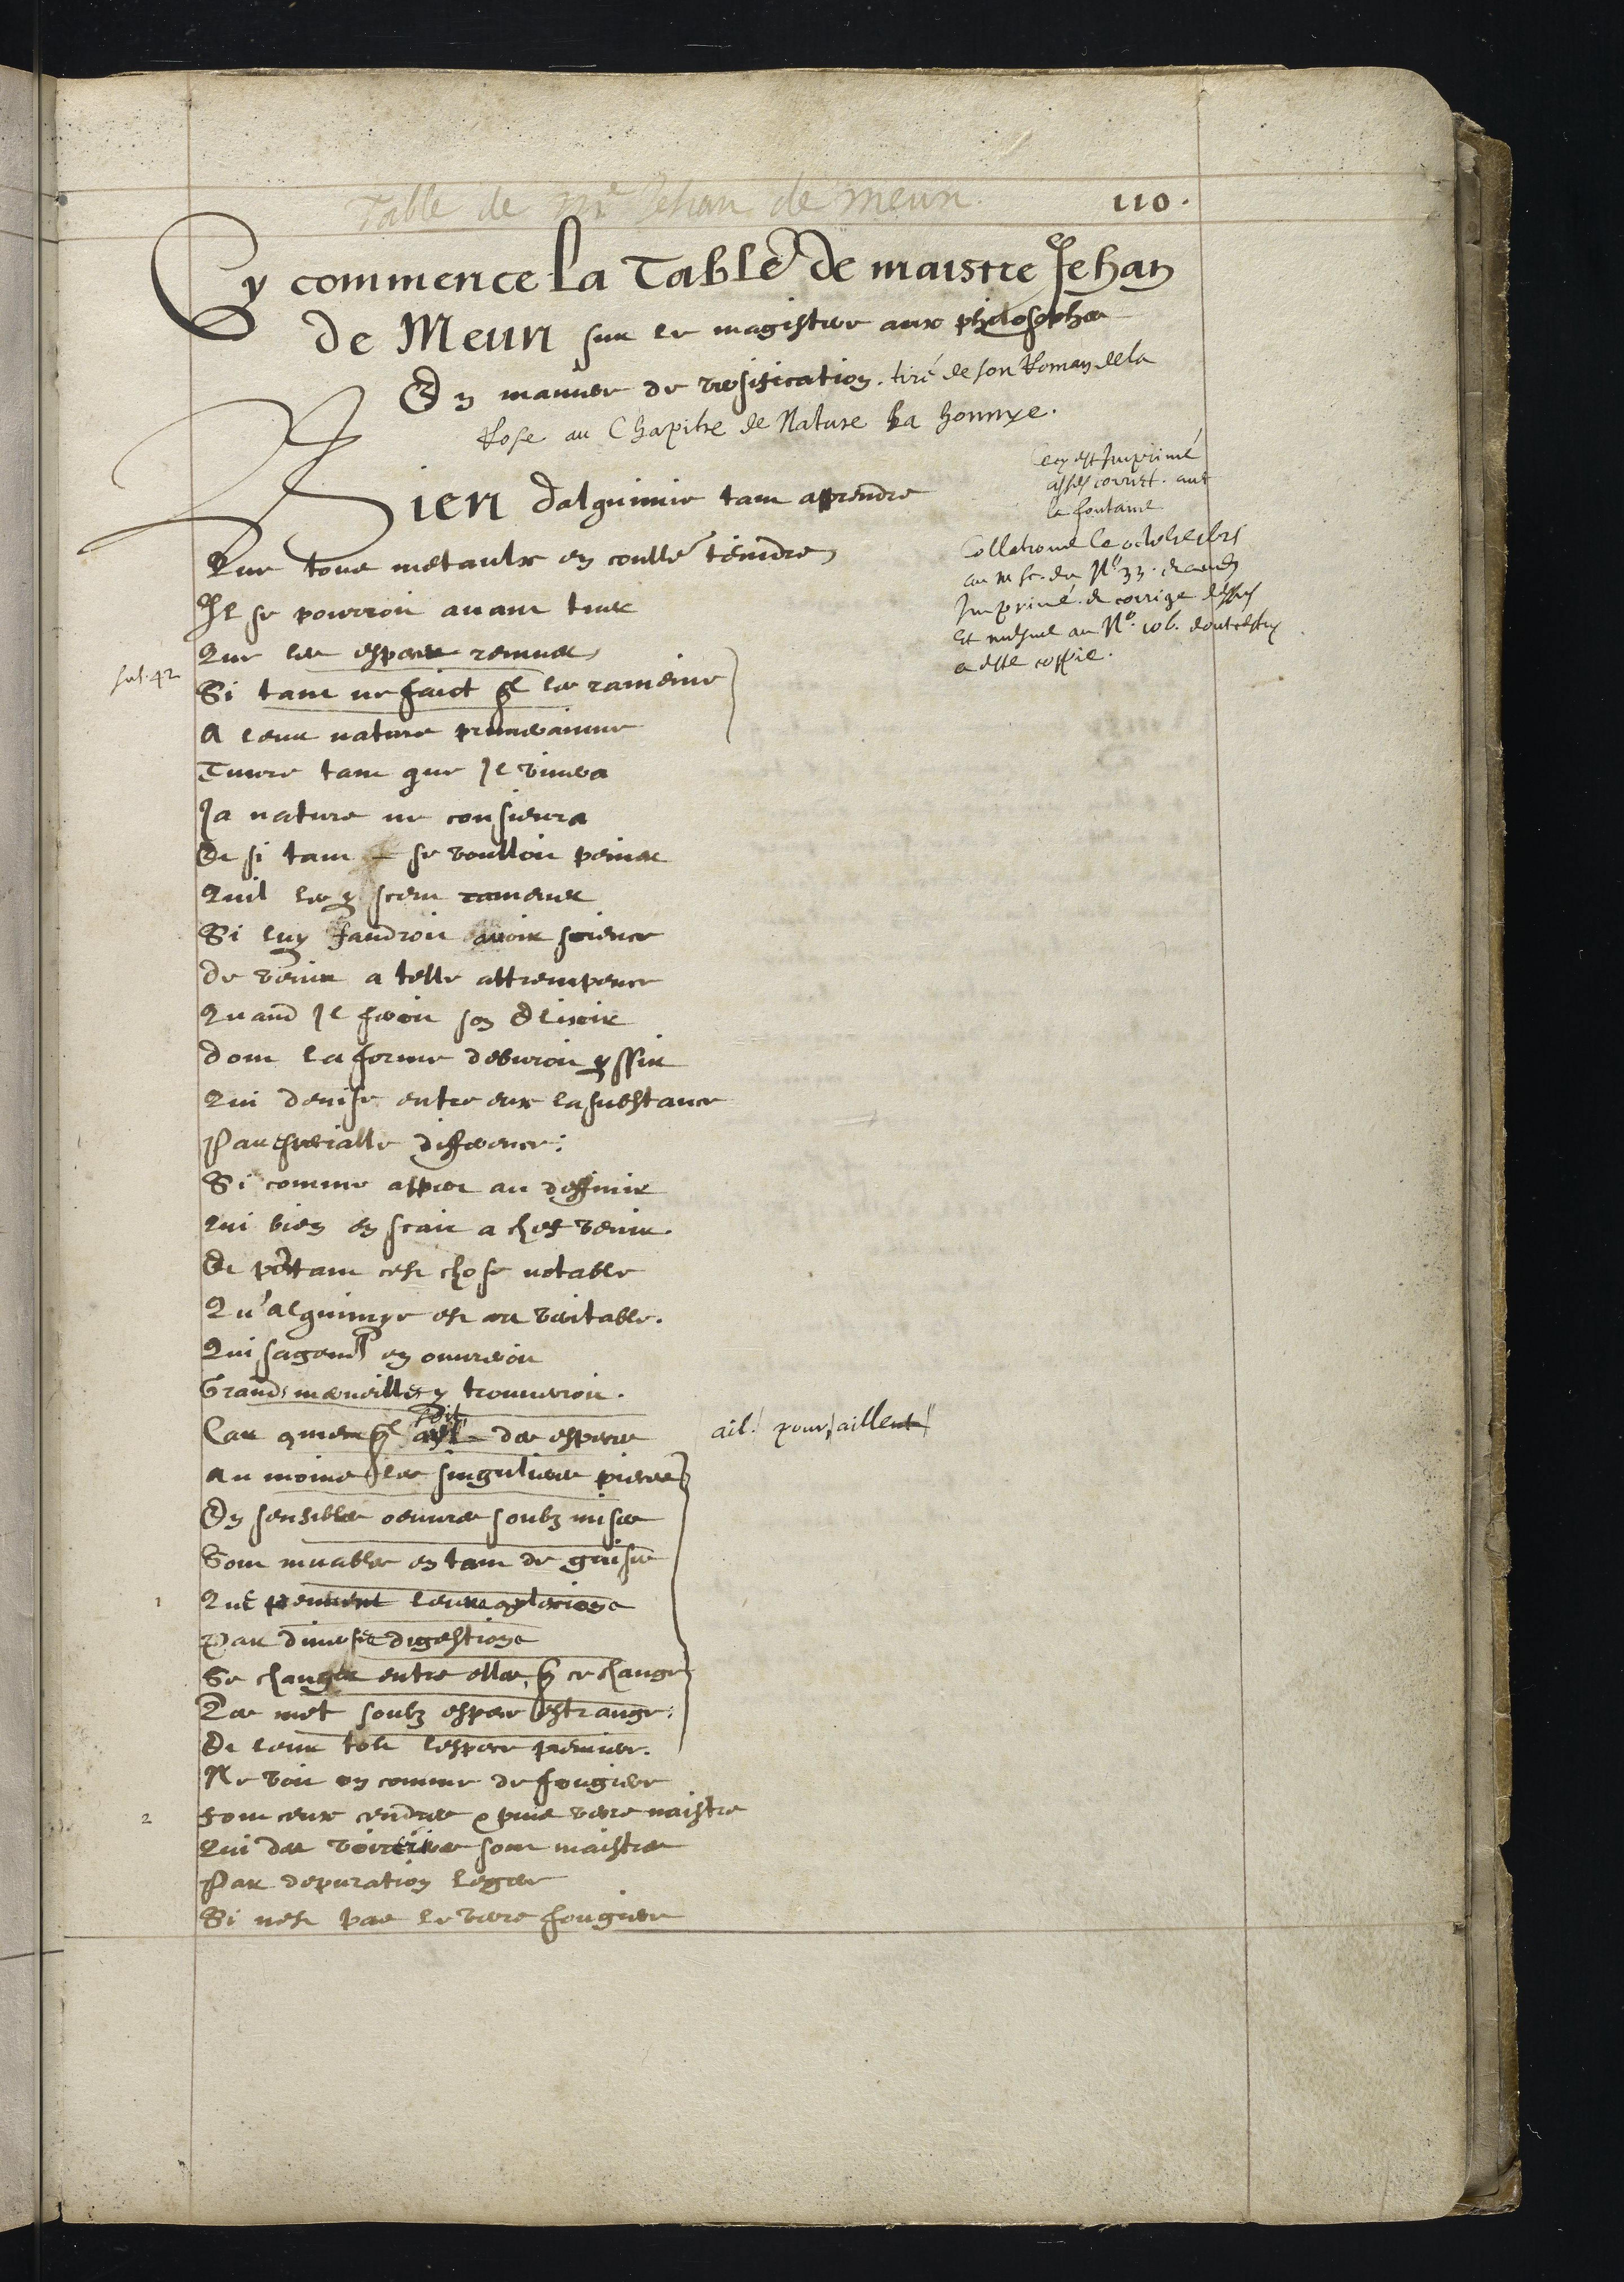 Table de Me Jehan de Meun.
110.
Cy commence la Table de maistre Jehan
de Meun sur le magistere aux philosophes
En maniere de versification. tiré de son Roman de la
Rose au Chapitre de Nature
Cecy est Imprimé
asses correct.
la fontaine
Collationné le
au msc. du No 33.
Imprimé. & corrigé dessus
Et mesme au No. 106.
a esté coppie.
Rien dalquimie tant apprendre
Que tous metaulx en coulleur teindre
Il se pourroit avant tuer
Que les especes remuer
fol. 42
Si tant ne faict ql les rameine
A leur nature primeraine
Euvre tant que Il vivera
Ja nature ne consievra
Et si tant se voulloit pener
Quil les y sceut ramener
Si luy faudroit avoir science
de venir a telle attrempence
Quand Il feroit son Elixir
dont la forme debvroit yssir
Qui devise entre eux la substance
Par specialle difference:
Si comme appert au deffinir
Qui bien en scait a chef venir.
Et portant cest chose notable
Qu'alquimye est art veritable.
Qui sagemt en ouvreroit
Grands merveilles y trouveroit.
Car des especes
ail. pour aillent
Au moins les singulieres pieces
En sensibles oeuvres soubz mises
Sont muables en tant de guises
1
Que peuvent leurs complexions
Par diverses digestions
Se changer entre elles, q ce change
Les met soubz espece estrange:
Et leur tolt lespece premiere.
Ne voit on comme de fougiere
2
Font ceux cendres & puis verre naistre
Qui de voirieres sont maistres
Par depuration legere
Si nest pas le verre fougiere